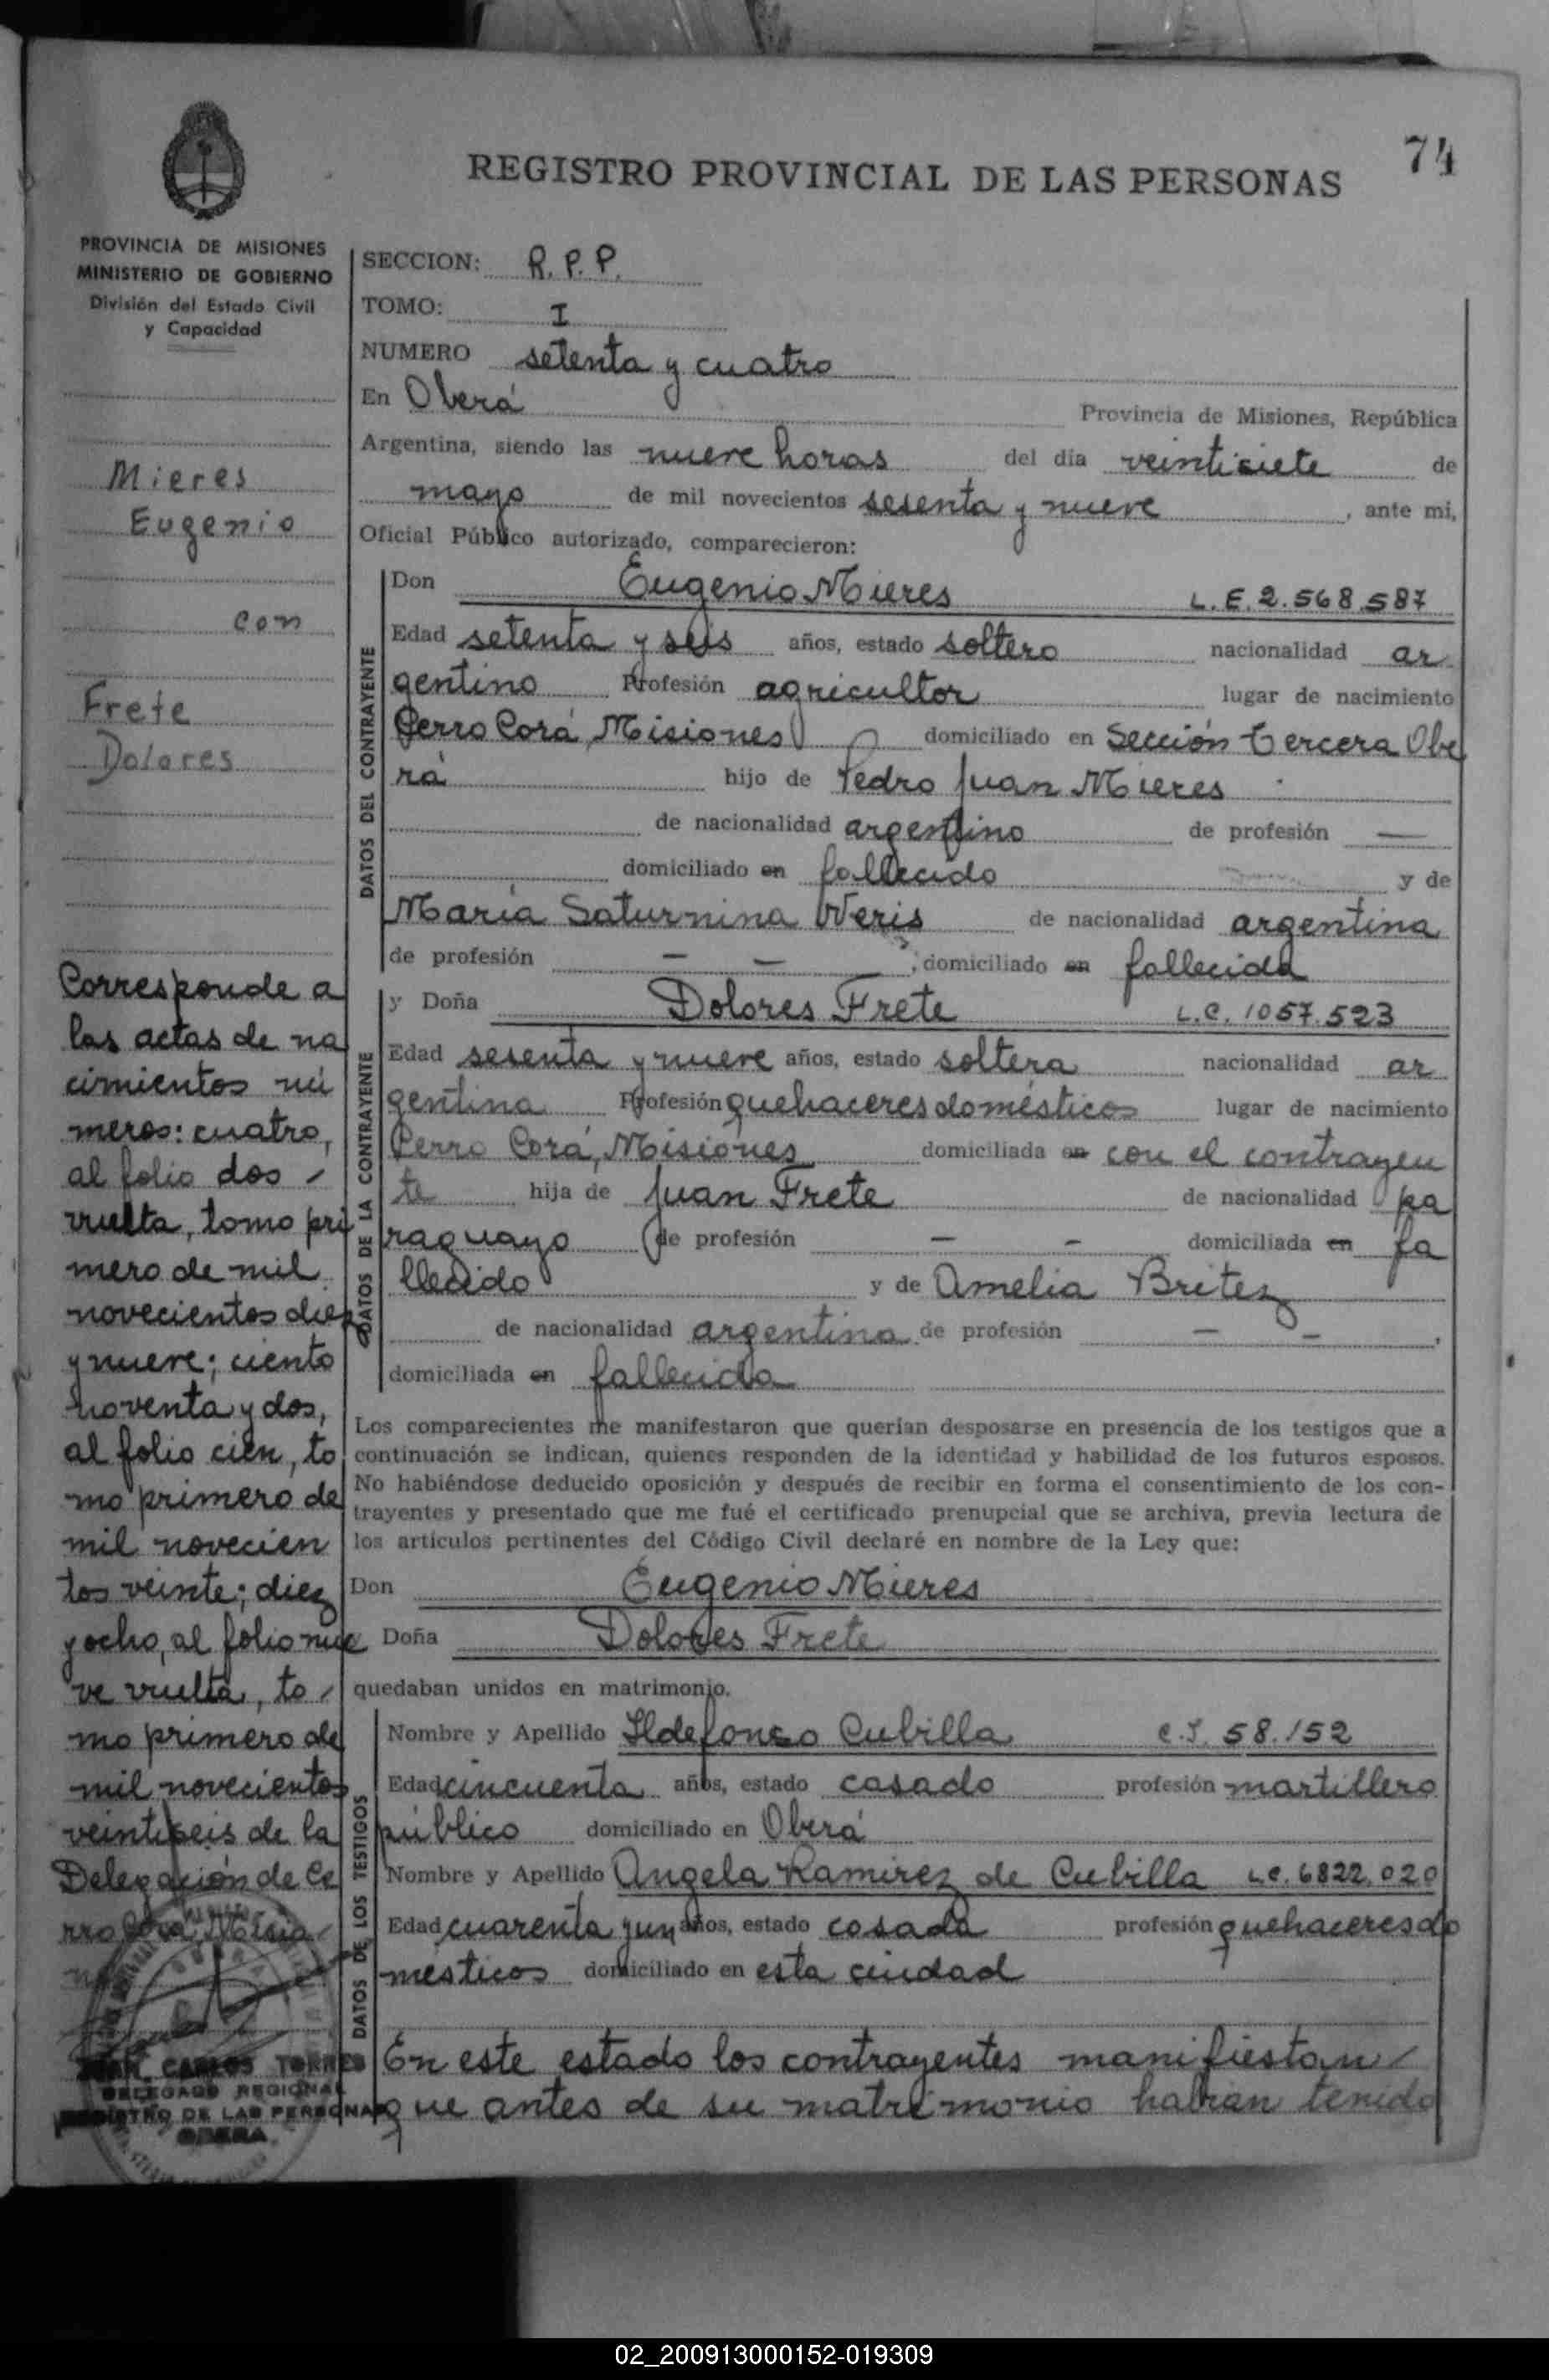 74
REGISTRO PROVINCIAL DE LAS PERSONAS
PROVINCIA DE MISIONES
MINISTERIO DE GOBIERNO
División del Estado Civil
y Capacidad
Mieres
Eugenio
con
Frete
Dolores
Corresponde a
las actas de na
cimientos nú
meros: cuatro,
al folio dos
vuelta, tomo pri
mero de mil
novecientos diez
y nueve; ciento
noventa y dos,
al folio cien, to
mo primero de
mil novecien
tos veinte; diez
y ocho, al folio nue
ve vuelta, to
mo primero de
mil novecientos
veintiseis de la
Delegación de Ce
rro Corá, Misio
JUAN CARLOS TORRES
DELEGADO REGIONAL
REGISTRO DE LAS PERSONAS
OBERA
SECCION: R. P. P.
TOMO: I
NUMERO setenta y cuatro
En Oberá Provincia de Misiones, República
Argentina, siendo las nueve horas del día veintisiete de
mayo de mil novecientos sesenta y nueve, ante mi,
Oficial Público autorizado, comparecieron:
DATOS DEL CONTRAYENTE
Don Eugenio Mieres L. E. 2.568.587
Edad setenta y seis años, estado soltero nacionalidad ar
gentino Profesión agricultor lugar de nacimiento
Cerro Corá, Misiones domiciliado en Sección Tercera Obe
rá hijo de Pedro Juan Mieres
de nacionalidad argentino de profesión —
domiciliado en fallecido y de
María Saturnina Weris de nacionalidad argentina
de profesión — —, domiciliado en fallecida
DATOS DE LA CONTRAYENTE
y Doña Dolores Frete L.C. 1057.523
Edad sesenta y nueve años, estado soltera nacionalidad ar
gentina Profesión quehaceres domésticos lugar de nacimiento
Cerro Corá, Misiones domiciliada en con el contrayen
te hija de Juan Frete de nacionalidad pa
raguayo de profesión — - domiciliada en fa
llecido y de Amelia Britez
de nacionalidad argentina de profesión — —,
domiciliada en fallecida
Los comparecientes me manifestaron que querían desposarse en presencia de los testigos que a
continuación se indican, quienes responden de la identidad y habilidad de los futuros esposos.
No habiéndose deducido oposición y después de recibir en forma el consentimiento de los con-
trayentes y presentado que me fué el certificado prenupcial que se archiva, previa lectura de
los artículos pertinentes del Código Civil declaré en nombre de la Ley que:
Don Eugenio Mieres
Doña Dolores Frete
quedaban unidos en matrimonio.
DATOS DE LOS TESTIGOS
Nombre y Apellido Ildefonso Cubilla C.I. 58.152
Edad cincuenta años, estado casado profesión martillero
público domiciliado en Oberá
Nombre y Apellido Angela Ramirez de Cubilla L.C. 6822.020
Edad cuarenta y un años, estado casada profesión quehaceres do
mésticos domiciliado en esta ciudad
En este estado los contrayentes manifiestan
que antes de su matrimonio habian tenido
02_200913000152-019309